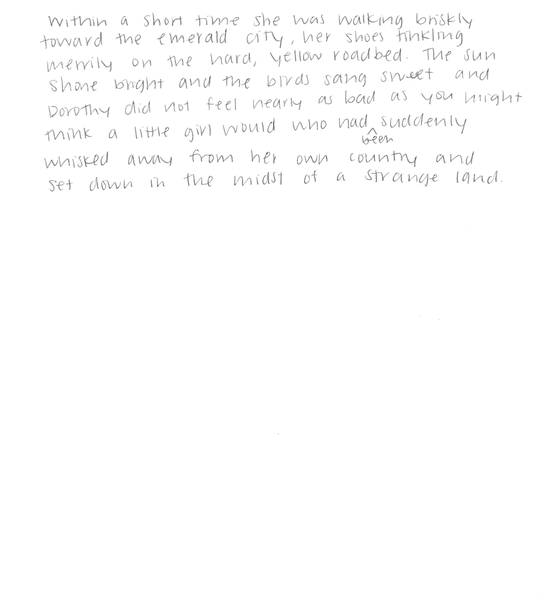 Within a short time she was walking briskly
toward the emerald city, her shoes tinkling
merrily on the hard, yellow roadbed. The sun
shone bright and the birds sang sweet and
Dorothy did not feel nearly as bad as you might
think a little girl would who had been suddenly
whisked away from her own country and
set down in the midst of a strange land.